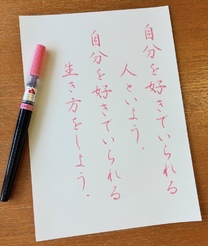 自分を好きでいられる
人といよう。
自分を好きでいられる
生き方をしよう。